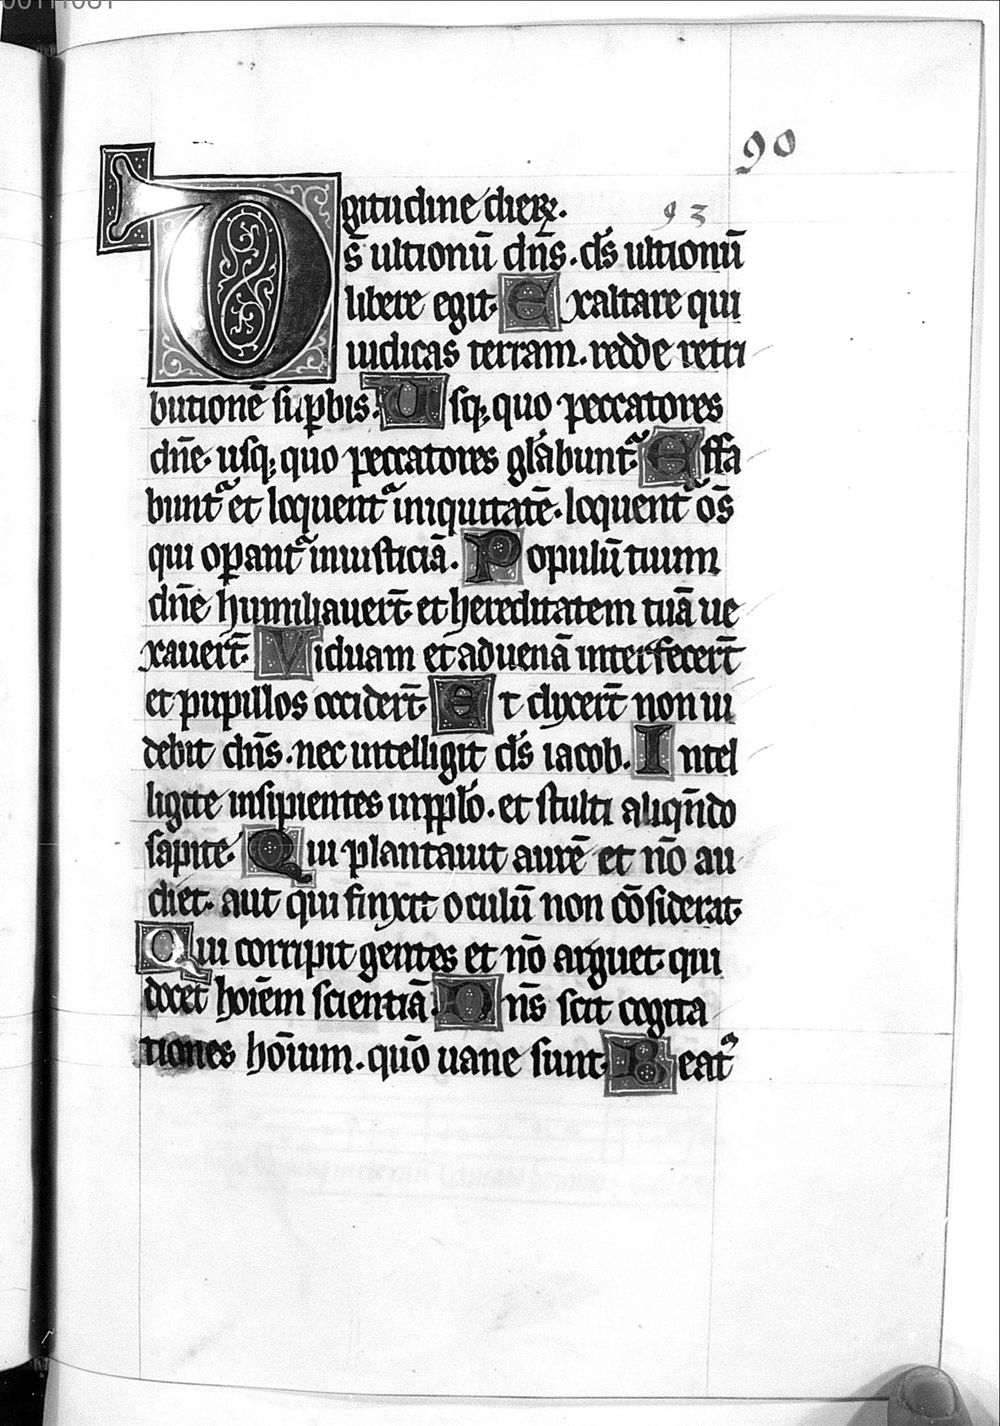 00111081
90
gitudine dieꝝ.
93
Ds̄ ultionū dn̄s. ds̄ ultionū
libere egit. Exaltare qui
iudicas terram. redde retri
butionē suꝑbis. Usq; quo peccatores
dn̄e. usq; quo peccatores gl̄abunt᷑. Effa
bunt᷑ et loquent᷑ iniquitatē. loquent᷑ os̄
qui oꝑant᷑ iniusticiā. Populū tuum
dn̄e humiliauert̄ et hereditatem tuā ue
xauert̄. Viduam et aduenā interfecert̄
et pupillos occidert̄. Et dixert̄ non ui
debit dn̄s. nec intelligit ds̄ iacob. Intel
ligite insipientes in ppl̄o. et stulti aliqn̄do
sapite. Qui plantauit aurē et nō au
diet. aut qui finxit oculū non cōsiderat.
Qui corripit gentes et nō arguet. qui
docet hoīem scientiā. Dn̄s scit cogita
tiones hoīum. quō uane sunt. Beat᷑